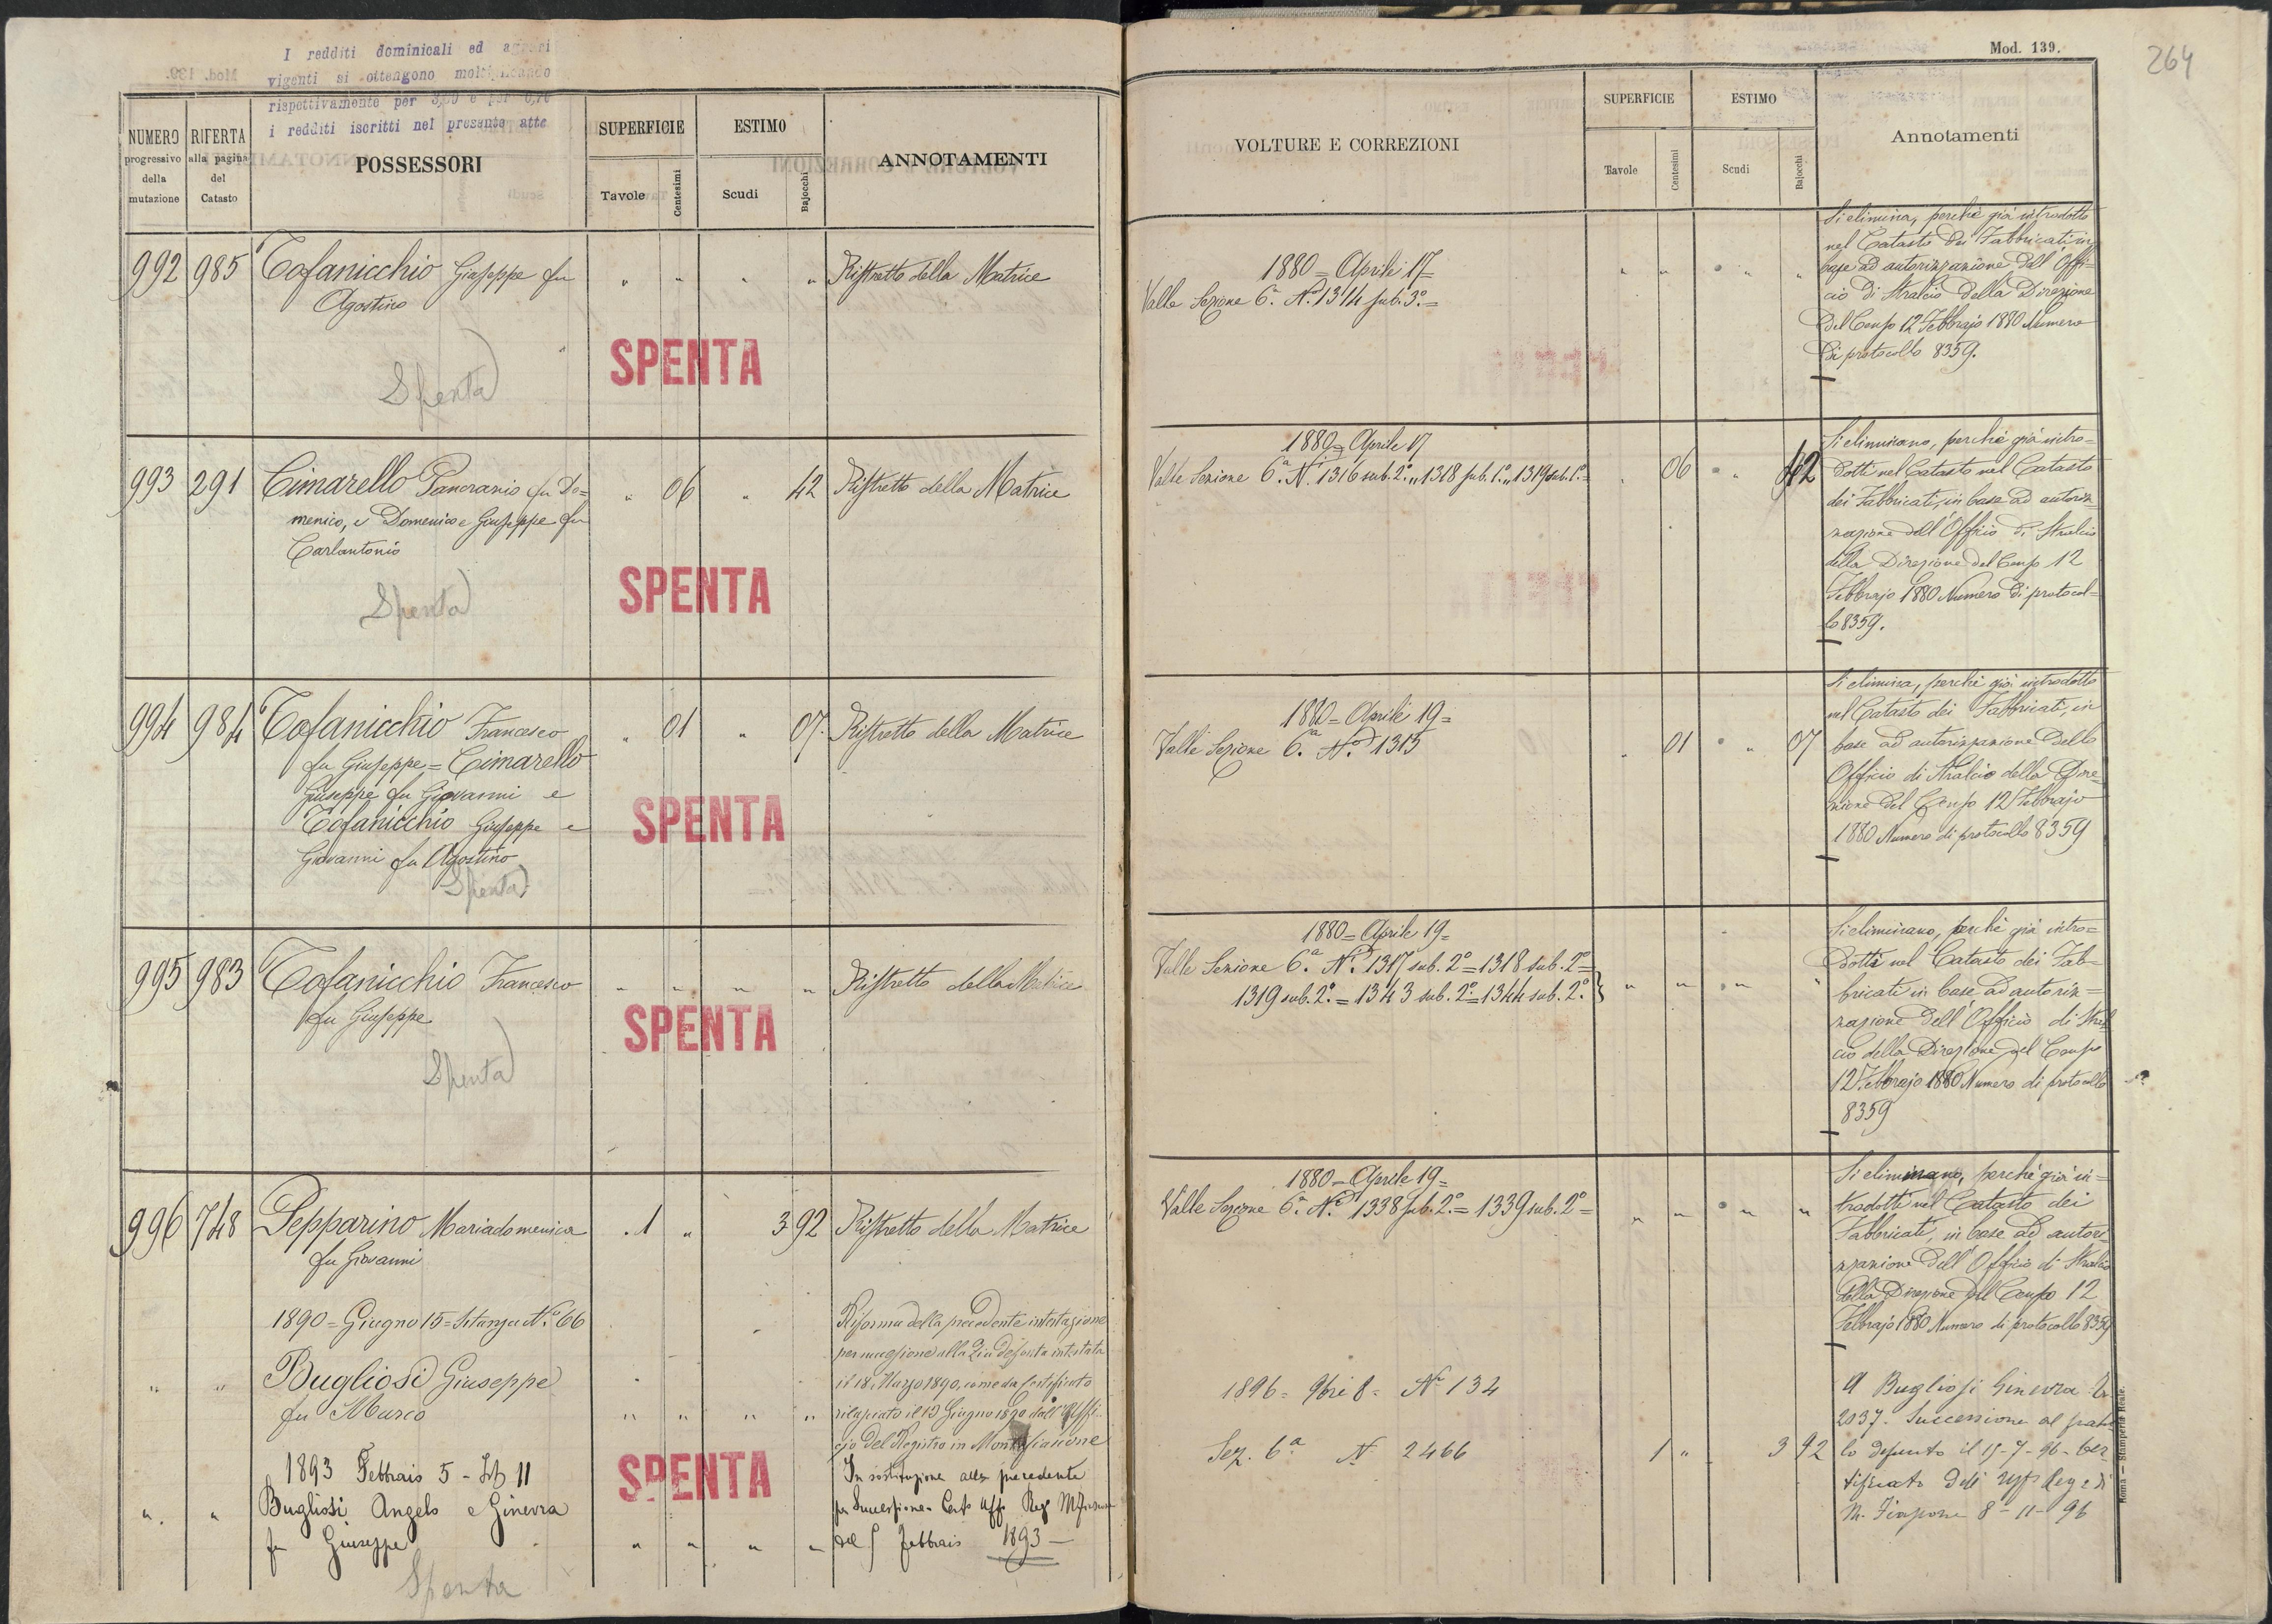 I redditi dominicali ed agrari
vigenti si ottengono moltiplicando
rispettivamente per 3,50 e per 0,70
i redditi iscritti nel presente atto
NUMERO
progressivo
della
mutazione
RIFERTA
alla pagina
del
Catasto
POSSESSORI
SUPERFICIE
Tavole
Centesimi
ESTIMO
Scudi
Bajocchi
ANNOTAMENTI
992 985 Tofanicchio Giuseppe fu " " " " Ristretto della Matrice
Agostino
SPENTA
Spenta
993 291 Cimarello Pancrazio fu Do= " 06 " 42 Ristretto della Matrice
menico, e Domenico e Giuseppe fu
Carlantonio
SPENTA
Spenta
994 984 Tofanicchio Francesco " 01 " 07 Ristretto della Matrice
fu Giuseppe = Cimarello
Giuseppe fu Giovanni e
Tofanicchio Giuseppe e
Giovanni fu Agostino
SPENTA
Spenta
995 983 Tofanicchio Francesco " " " " Ristretto della Matrice
fu Giuseppe
SPENTA
Spenta
996 748 Pepparino Mariadomenica 1 " 3 92 Ristretto della Matrice
fu Giovanni
1890 = Giugno 15 = Istanza N.° 66
Riforma della precedente intestazione
per successione alla Zia defunta intestata
il 18 Marzo 1890, come da Certificato
rilasciato il 13 Giugno 1890 dall'Uffi
cio del Registro in Montefiascone
" " Bugliosi Giuseppe
fu Marco " " " "
1893 Febbraio 5 - 11
" " Bugliosi Angelo e Ginevra
fu Giuseppe " " " "
In sostituzione alla precedente
per Successione - Cert° Uff° Reg°
del 5 Febbraio 1893 —
SPENTA
Spenta
Mod. 139.
264
VOLTURE E CORREZIONI
SUPERFICIE
Tavole
Centesimi
ESTIMO
Scudi
Bajocchi
Annotamenti
1880 = Aprile 17 =
Valle Sezione 6ª N.° 1314 sub. 3.° = " " " "
Si elimina, perchè già introdotto
nel Catasto dei Fabbricati in
base ad autorizzazione dell'Offi=
cio di Stralcio della Direzione
del Censo 12 Febbrajo 1880 Numero
di protocollo 8359.
1880 = Aprile 17
Valle Sezione 6.ª N.i 1316 sub. 2.° „ 1318 sub. 1.° „ 1319 sub. 1.° = " 06 " 42
Si eliminano, perchè già intro=
dotti nel Catasto nel Catasto
dei Fabbricati, in base ad autoriz
zazione dell'Officio di Stralcio
della Direzione del Censo 12
Febbrajo 1880 Numero di protocol=
lo 8359.
1880 = Aprile 19 =
Valle Sezione 6.ª N.° 1315 " 01 " 07
Si elimina, perchè già introdotto
nel Catasto dei Fabbricati, in
base ad autorizzazione dello
Officio di Stralcio della Dire=
zione del Censo 12 Febbrajo
1880 Numero di protocollo 8359
1880 = Aprile 19 =
Valle Sezione 6.ª N.i 1317 sub. 2° = 1318 sub. 2° =
1319 sub. 2.° = 1343 sub. 2.° = 1344 sub. 2.° } " " " "
Si eliminano, perchè già intro=
dotti nel Catasto dei Fab=
bricati in base ad autoriz=
zazione dell'Officio di Stral
cio della Direzione del Censo
12 Febbrajo 1880 Numero di protocollo
8359
1880 = Aprile 19 =
Valle Sezione 6.ª N.i 1338 sub. 2.° = 1339 sub. 2.° = " " " "
Si eliminano, perchè già in=
trodotti nel Catasto dei
Fabbricati, in base ad autori
zzazione dell'Officio di Stralcio
della Direzione del Censo 12
Febbrajo 1880 Numero di protocollo 8359
1896 = 9bre 8 = N° 132
Sez. 6ª N 2466 1 " 3 92
A Bugliosi Ginevra
2037. Successione al fratel
lo defunto il 15-7-96- Cer
tificato dell' Uff° Reg° di
M. Fiascone 8-11-96
Roma — Stamperia Reale.